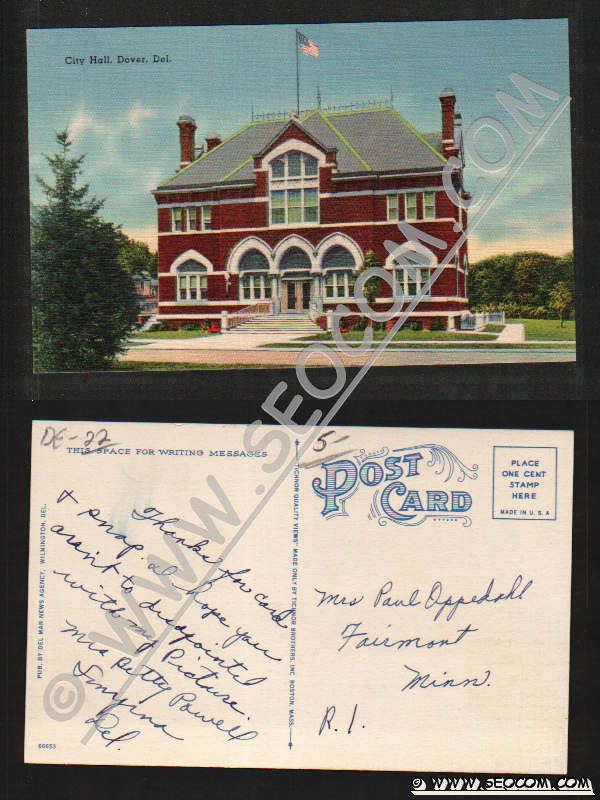 City Hall, Dover, Del.
DE-22
5-
THIS SPACE FOR WRITING MESSAGES
POST CARD
PLACE
ONE CENT
STAMP
HERE
MADE IN U.S.A
PUB. BY DEL MAR NEWS AGENCY, WILMINGTON, DEL.
"TICHNOR QUALITY VIEWS" MADE ONLY BY TICHNOR BROTHERS, INC. BOSTON, MASS.
Thanks for card
& snap. I hope you
arain't to disappointed
with my Picture.
Mrs Betty Powell
Smyrna
Del.
Mrs Paul Oppedahl
Fairmont
Minn.
R.1.
66653
© WWW.SEOCOM.COM
© WWW.SEOCOM.COM